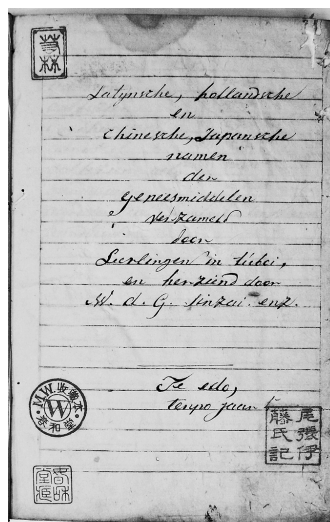 Latynsche, hollandsche
en
chinesche, Japansche
namen
der
geneesmiddelen
verzameld
door
Leerlingen in
en herziend door
W. d. G. enz.
Te edo,
tenpo jaar
M.W. 收藏本
W
尾張伊
藤氏記